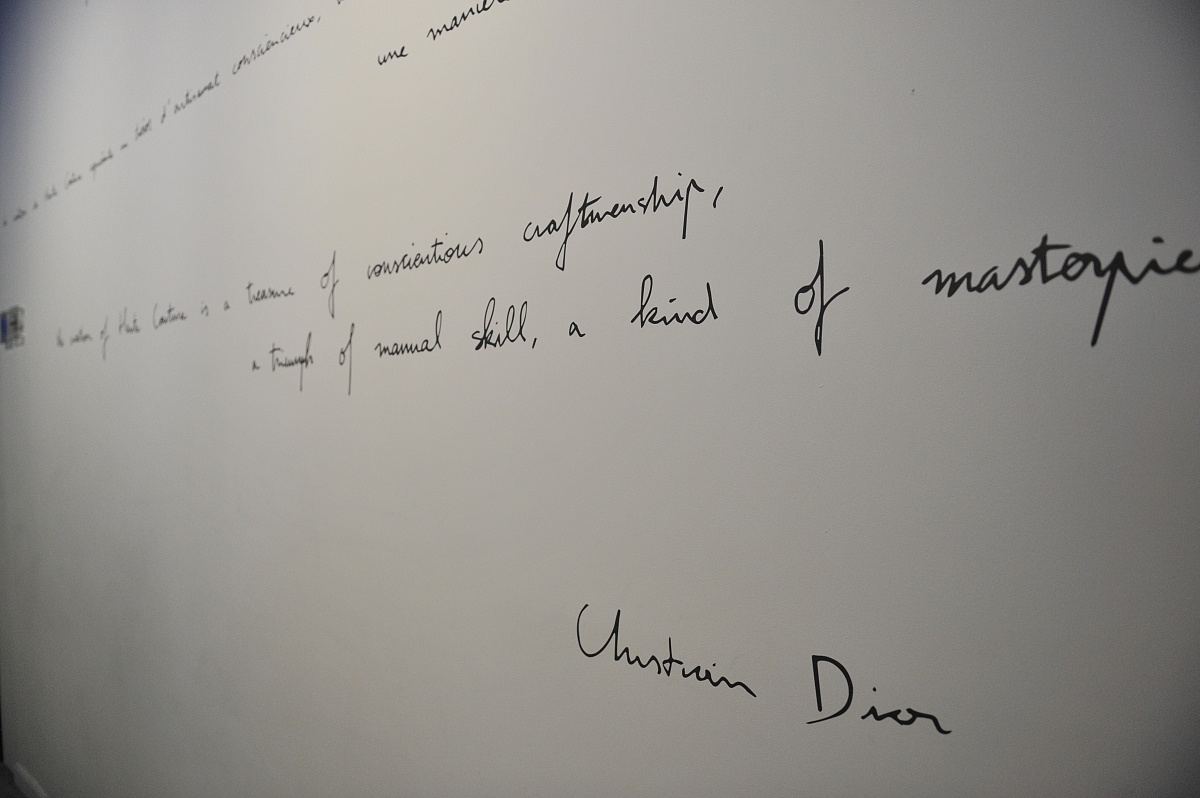 trésor d'artisanat consciencieux,
une
of Haute Couture is a treasure of conscientious craftmenship,
a triumph of manual skill, a kind of masterpie
Christian Dior